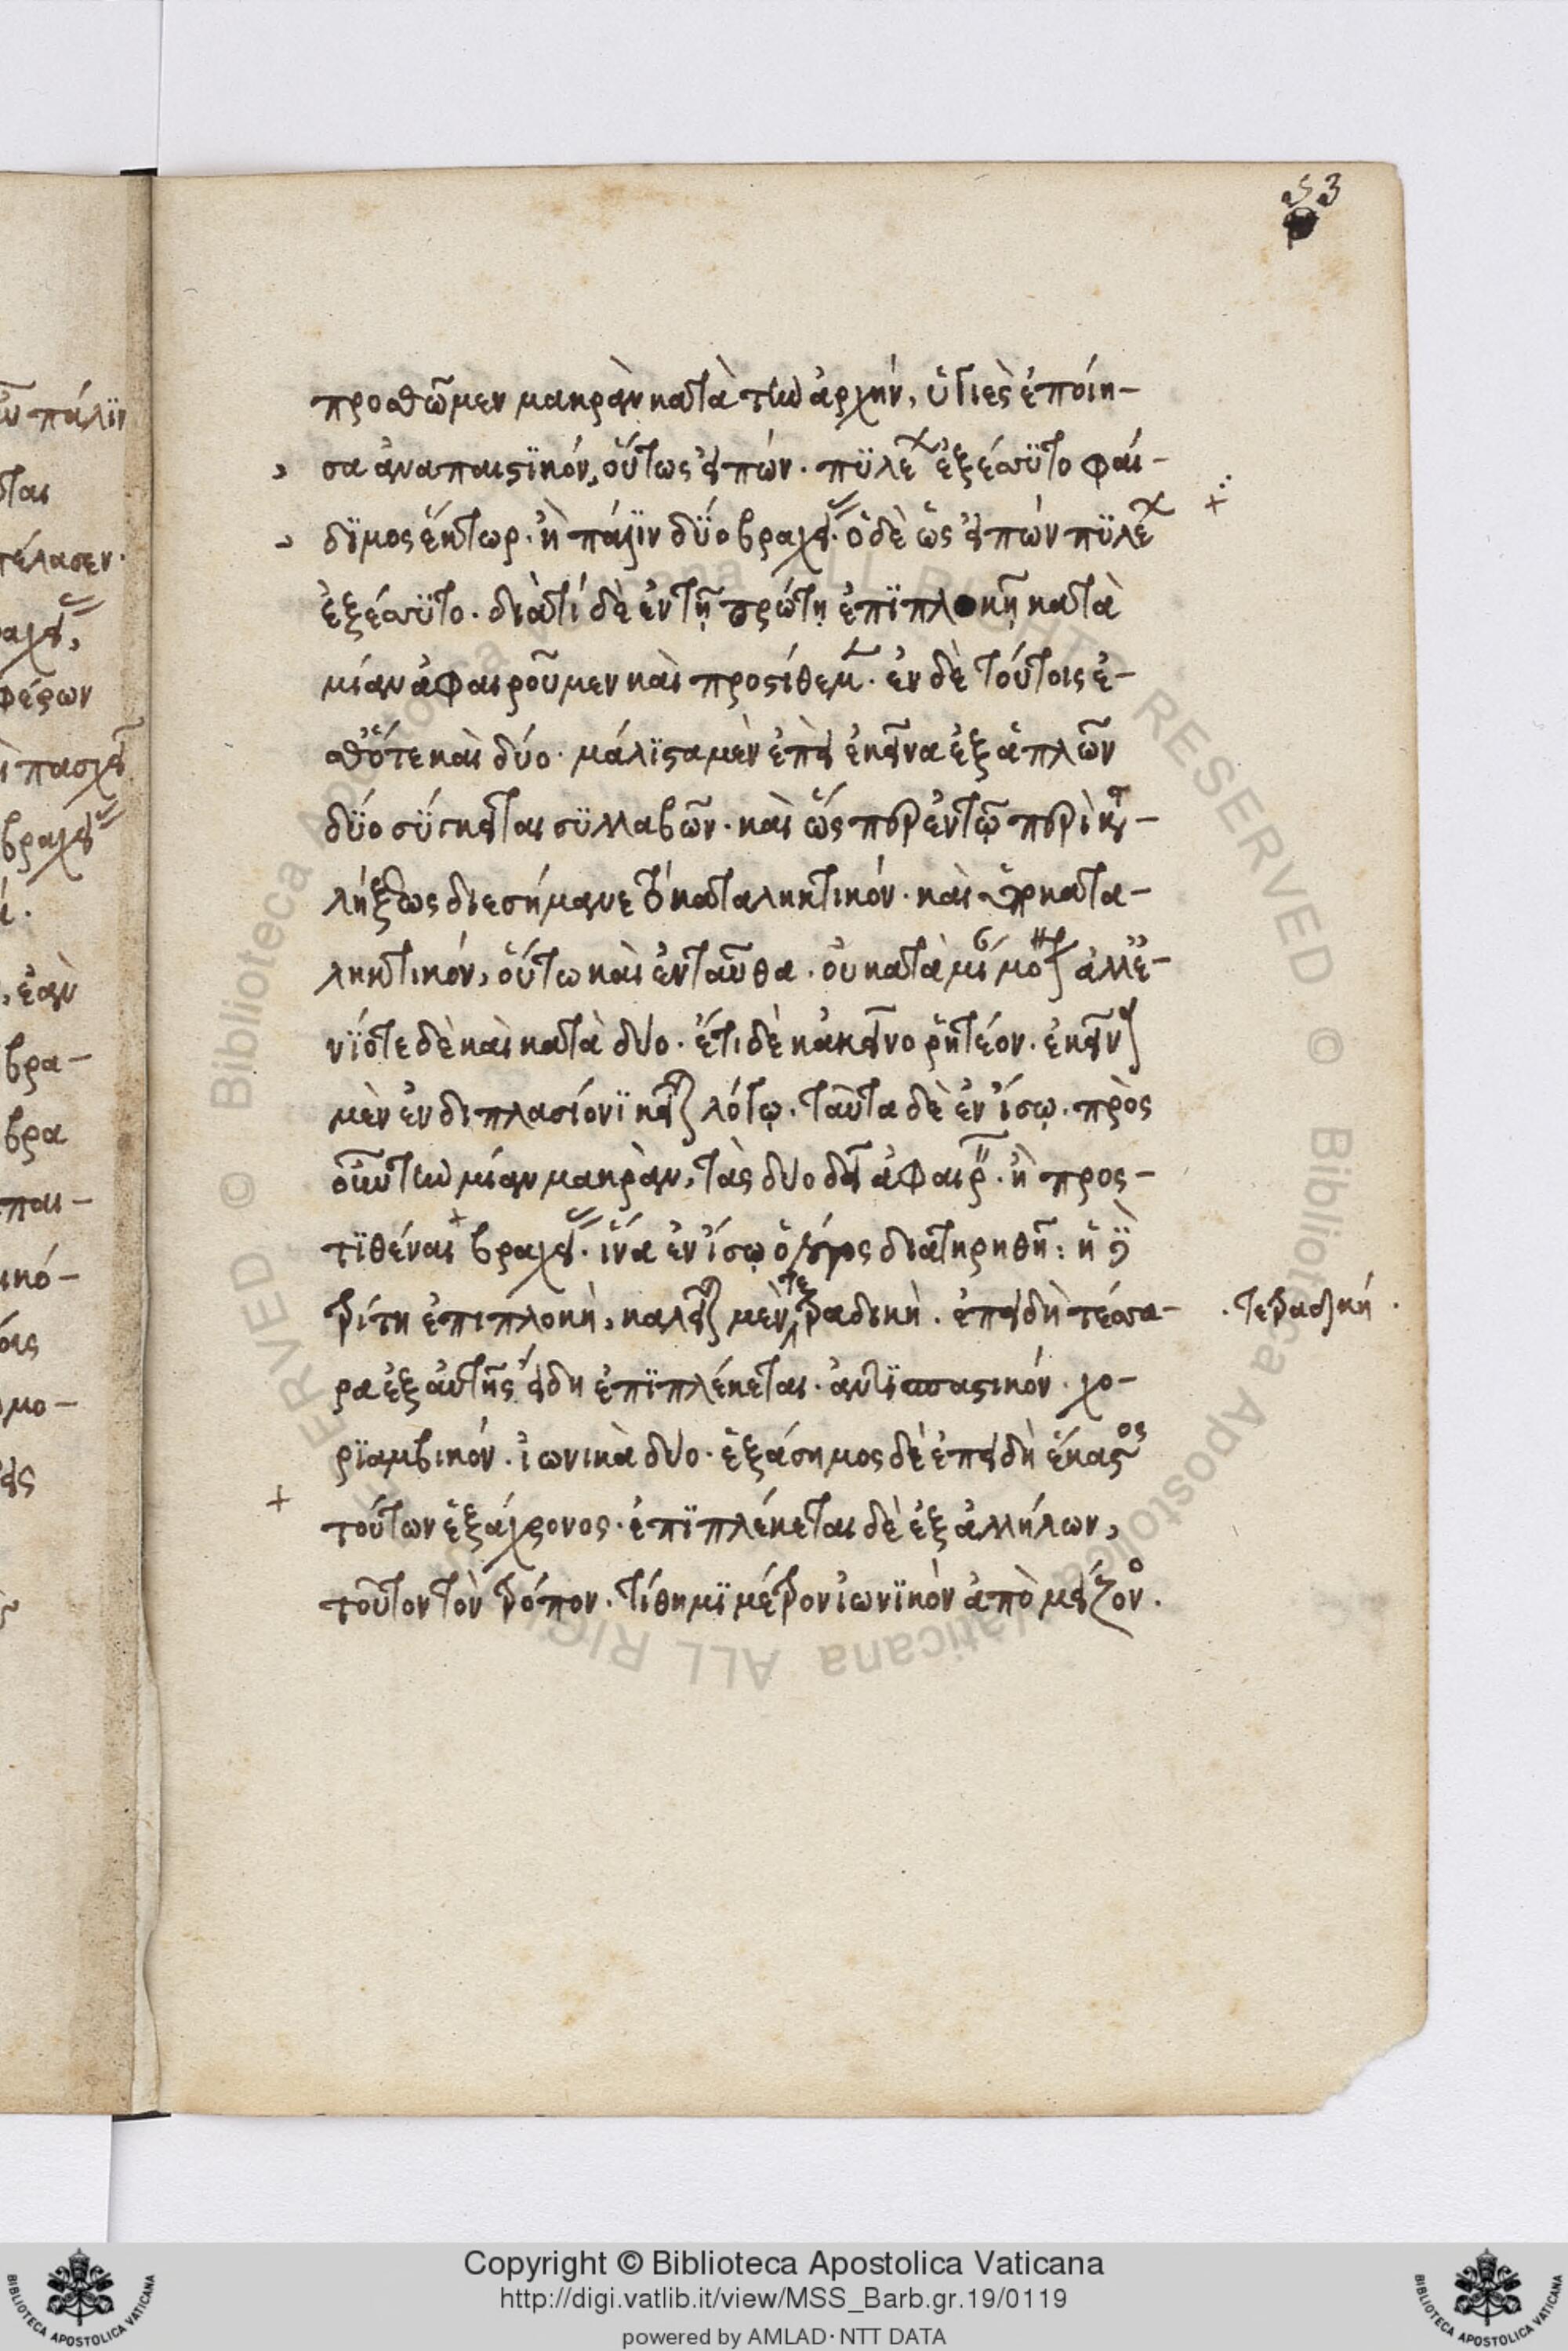 53
προσθῶμεν μακρὰν κατὰ τὴν ἀρχήν, ὑγιὲς ἐποίη-
σα ἀναπαιστϊκόν, οὕτως εἰπών. πϋλέχ ἐξέσσϋτο φαί-
δϊμος ἕκτωρ. ἢ πάλϊν δΰο βραχεί. ὁ δὲ ὡς εἰπὼν πϋλέχ
ἐξέσσϋτο. διὰ τί δὲ ἐν τῇ πρώτῃ ἐπϊπλοκῇ κατὰ
μίαν ἀφαιροῦμεν καὶ προστίθεμ. ἐν δὲ τούτοις ἐ-
σθότε καὶ δύο. μάλϊστα μὲν ἐπεὶ ἐκεῖνα ἐξ ἁπλῶν
δΰο σΰγκειται σϋλλαβῶν. καὶ ὥσπερ ἐν τῷ περὶ κα-
λήξεως διεσήμανε τὸ καταληκτικόν. καὶ ὑπερκατα-
ληκτικόν, οὕτω καὶ ἐνταῦθα. οὐ κατὰ μί μο ἀλλ' ἐ-
νΐοτε δὲ καὶ κατὰ δύο. ἔτι δὲ κἀκεῖνο ῥητέον. ἐκεῖν
μὲν ἐν διπλασίονϊ κεῖται λόγῳ. ταῦτα δὲ ἐν ἴσῳ. πρὸς
οὖν τὴν μίαν μακρὰν, τὰς δύο δεῖ ἀφαιρ. ἢ προσ-
τϊθέναι βραχεί. ἵνα ἐν ἴσῳ ὁ λόγος διατηρηθῇ: ἡ γ
τρίτη ἐπιπλοκὴ, καλεῖται μὲν τετραδικὴ. ἐπειδὴ τέσσα-
. τετραδικὴ .
ρα ἐξ αὐτῆς εἴδη ἐπϊπλέκεται. ἀντϊσπαστικόν. χο-
ρϊαμβικόν. ἰωνικὰ δύο. ἑξάσημος δὲ ἐπειδὴ ἕκαστος
τούτων ἑξάχρονος. ἐπϊπλέκεται δὲ ἐξ ἀλλήλων,
τοῦτον τὸν τρόπον. τίθημϊ μέτρον ἰωνϊκὸν ἀπὸ μείζον.
Copyright © Biblioteca Apostolica Vaticana
http://digi.vatlib.it/view/MSS_Barb.gr.19/0119
powered by AMLAD · NTT DATA